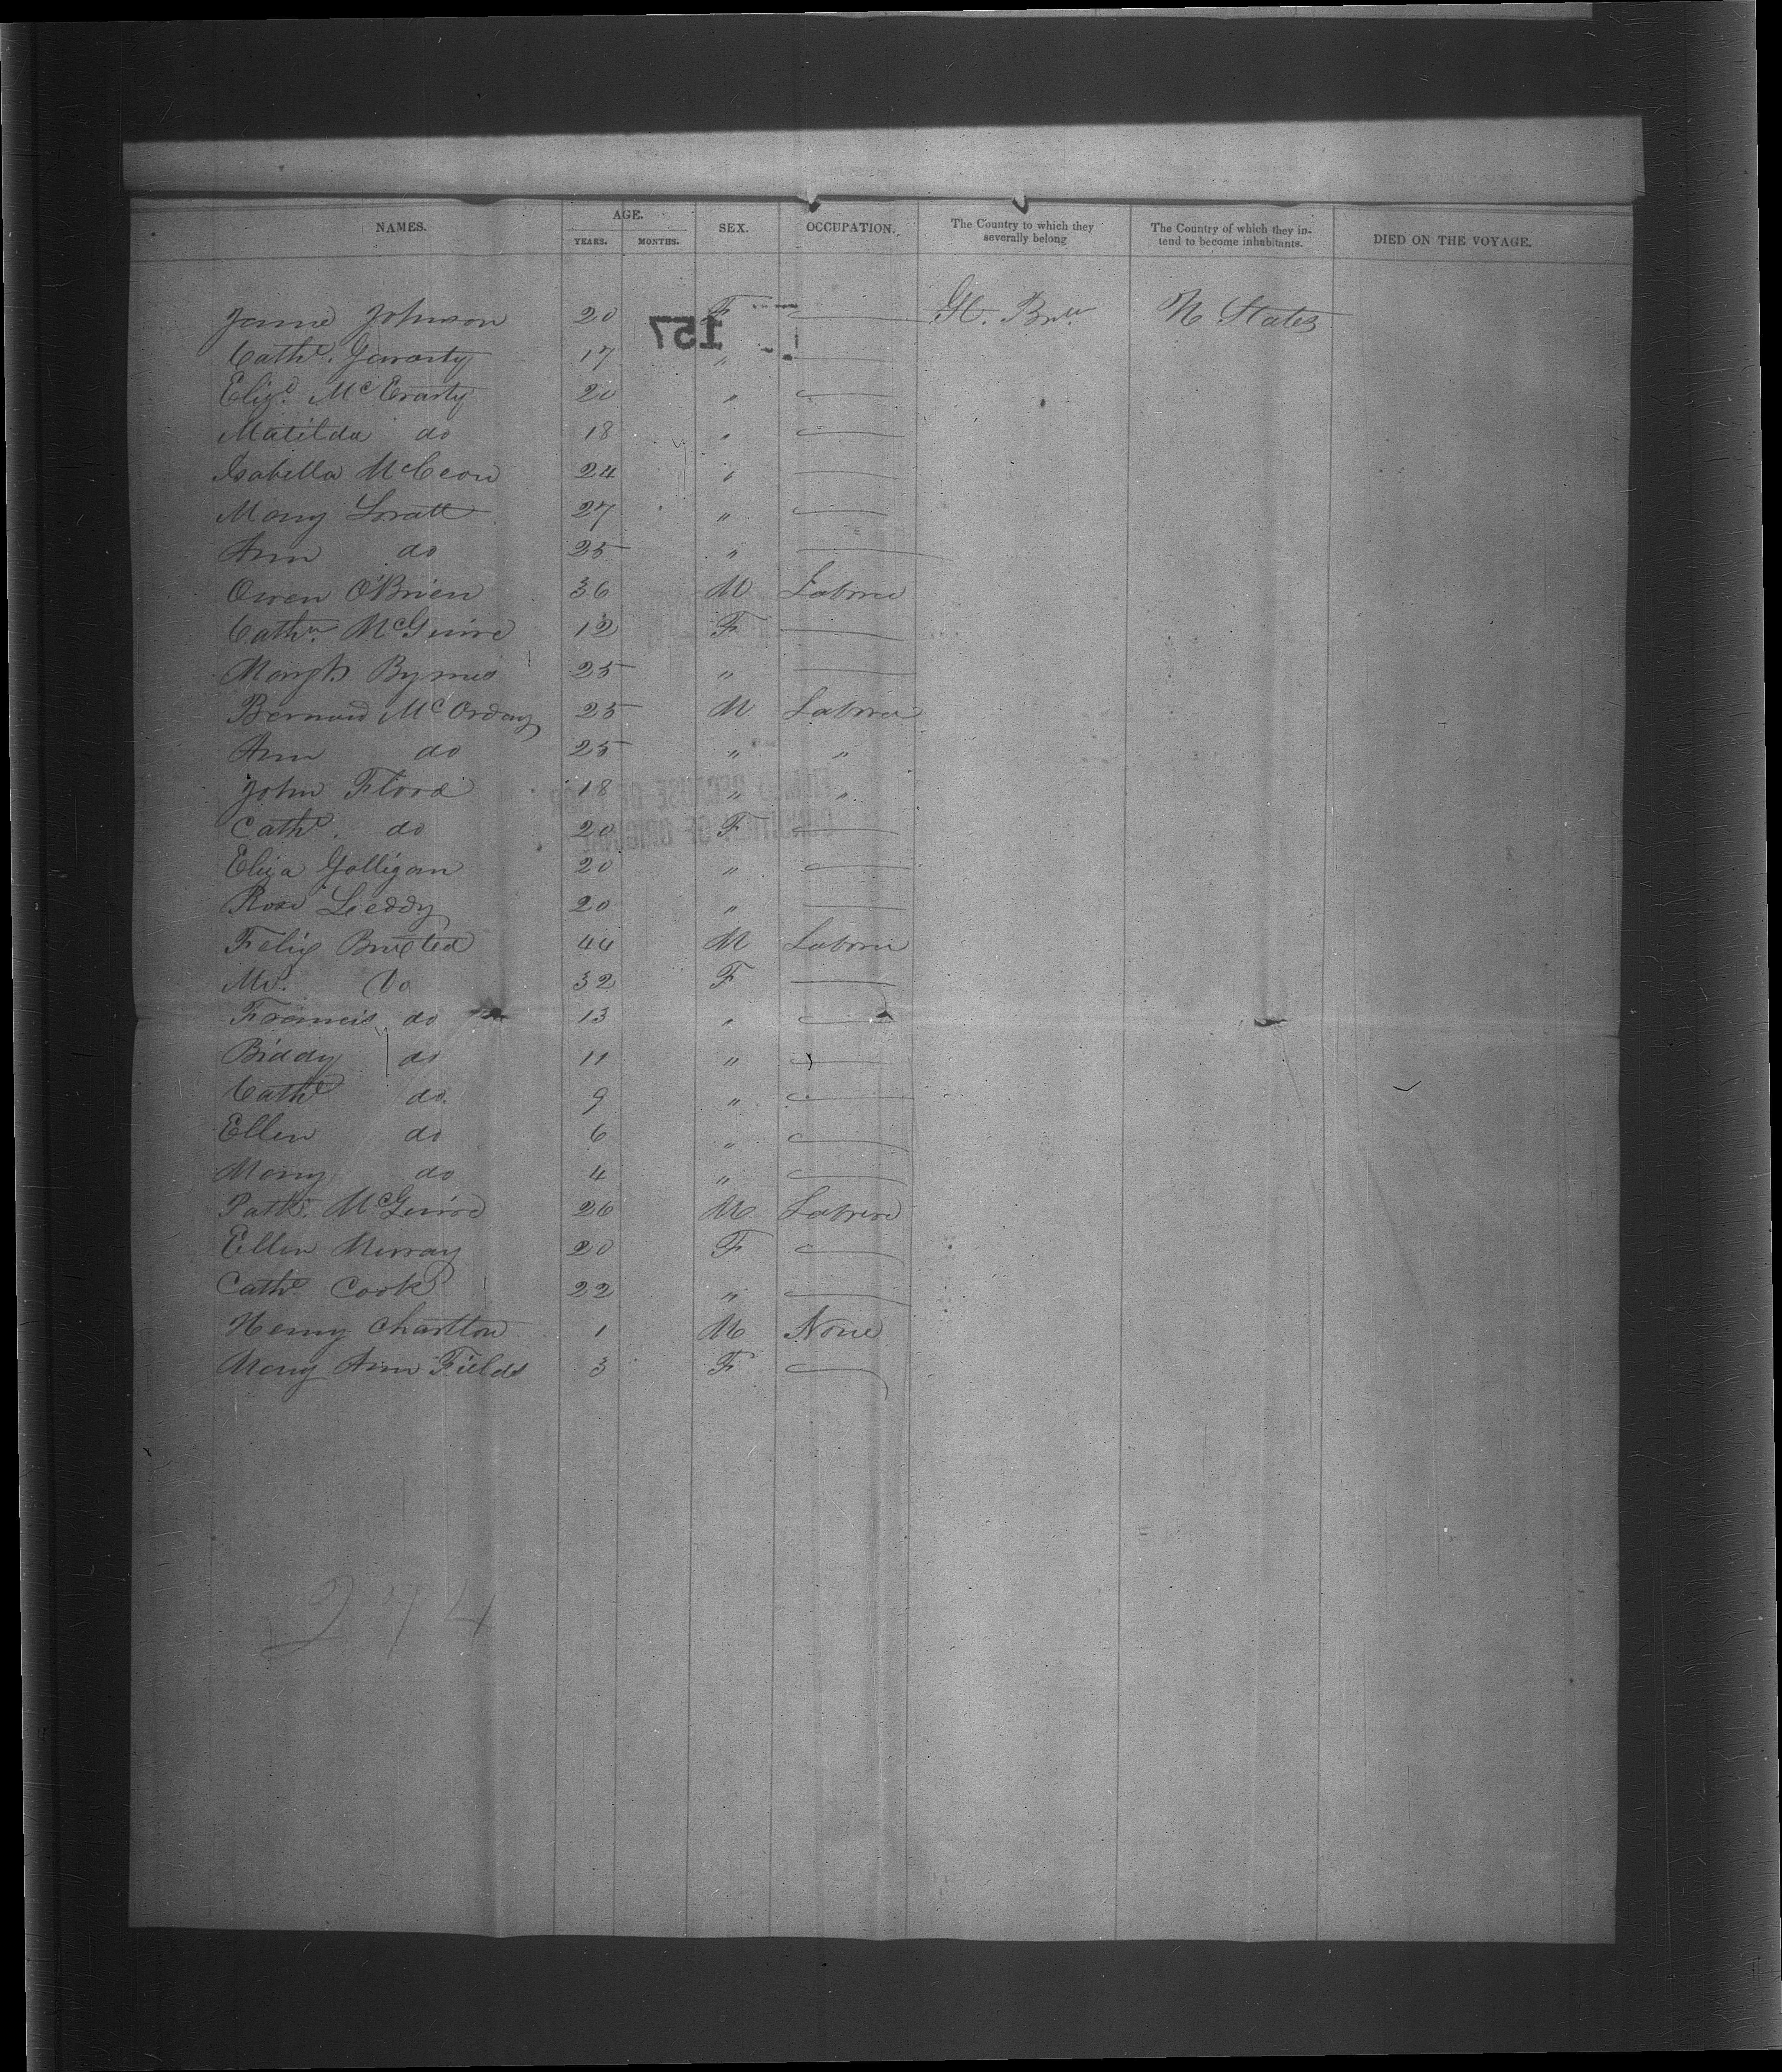 NAMES. AGE. SEX. OCCUPATION. The Country to which they severally belong The Country of which they intend to become inhabitants. DIED ON THE VOYAGE.
YEARS. MONTHS.
157
Jane Johnson 20 F — Gt. Brn U States
Cathe. Gararty 17 " —
Eliz. McGrarty 20 " —
Matilda do 18 " —
Isabella McCeon 24 " —
Mary 27 " —
Ann do 25 " —
Owen O'Brien 36 M Laborer
Cathn. McGuire 12 F —
Margt. Byrnes 25 " —
Bernard McArday 25 M Laborer
Ann do 25 " "
John Flood 18 " "
Cathe. do 20 F —
Eliza Golligan 20 " —
Rose Leddy 20 " —
Felix 44 M Laborer
Mrs. Do 32 F —
Francis do 13 " —
Biddy do 11 " —
Cathe do 9 " —
Ellen do 6 " —
Mary do 4 " —
Patk. McGuire 26 M Laborer
Ellen Murray 20 F —
Cathe Cook 22 " —
Henry Charlton 1 M None
Mary Ann Fields 3 F —
274